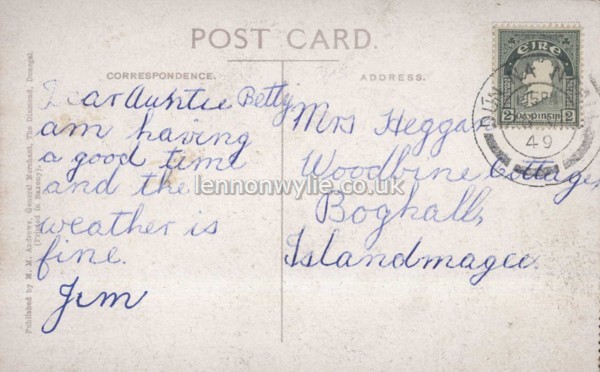 POST CARD.
CORRESPONDENCE.
ADDRESS.
Dear Auntie Betty
am having
a good time
and the
weather is
fine.
Jim
Mrs Heggan
Woodbine Cottage,
Boghall,
Islandmagee.
ÉIRE
2 2
49
lennonwylie.co.uk
Published by M. M. Andrews, General Merchant, The Diamond, Donegal.
(Printed in Saxony).